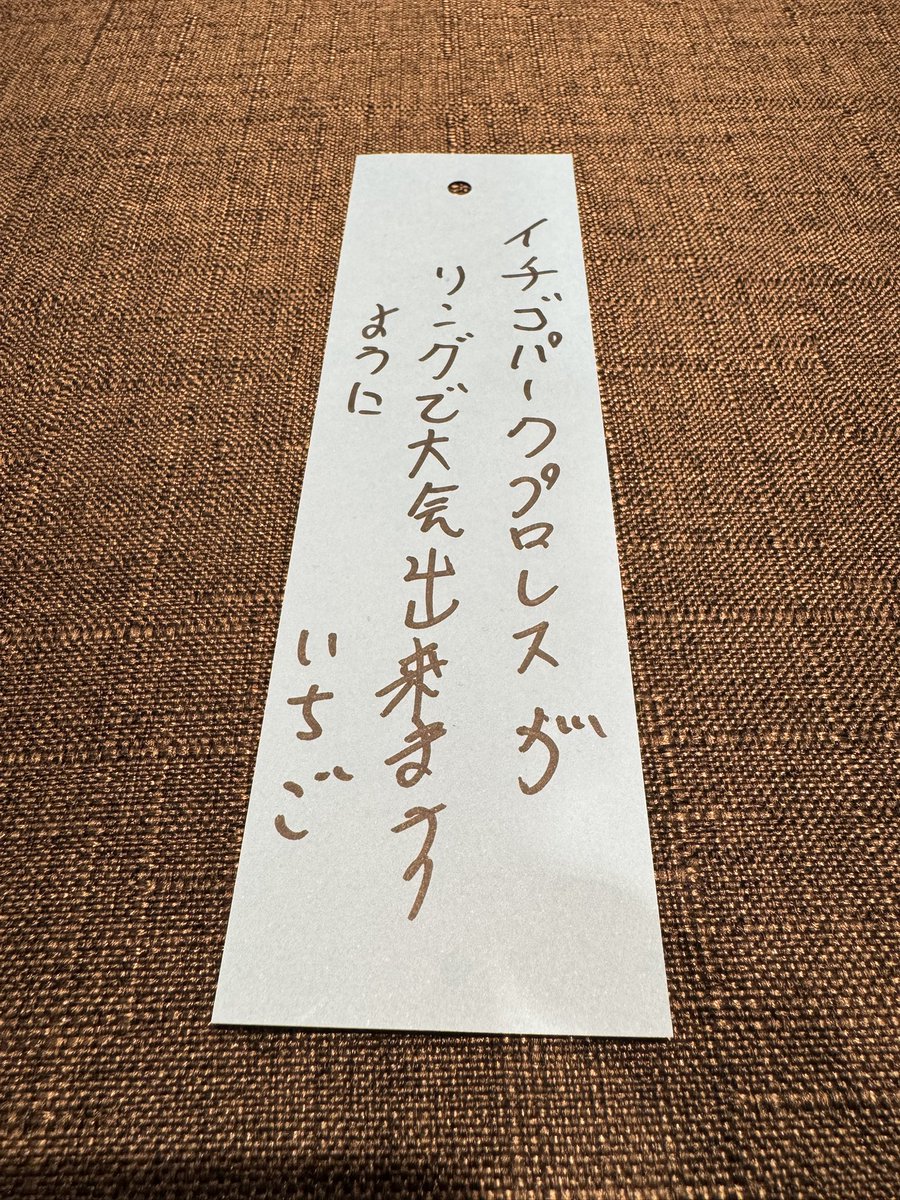 イチゴパークプロレスが
リングで大会出来ます
ように
いちご